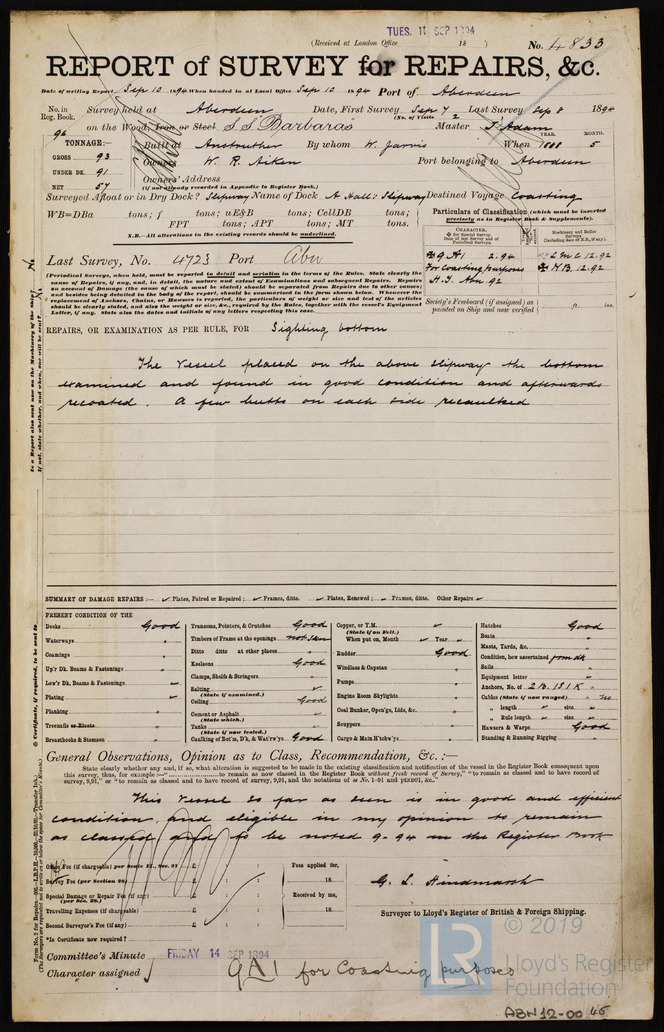 TUES. 11 SEP 1894
(Received at London Office 18 )
No. 4833
REPORT of SURVEY for REPAIRS, &c.
Date of writing Report Sep 10 1894 When handed in at Local Office Sep 10 1894 Port of Aberdeen
No. in Reg. Book. Survey held at Aberdeen Date, First Survey Sep 7 Last Survey Sep 8 1894
(No. of Visits 2
96 on the Wood, Iron or Steel S.S Barbaras Master J. Adam
TONNAGE:— Built at Anstruther By whom W. Jarvis When YEAR. MONTH. 5
GROSS 93 Owners W. R. Aiken Port belonging to Aberdeen
UNDER DK. 91 Owners' Address
NET 57 (if not already recorded in Appendix to Register Book.)
Surveyed Afloat or in Dry Dock? Slipway Name of Dock A Hall's Slipway Destined Voyage Coasting
WB=DBa tons; f tons; uE&B tons; CellDB tons;
FPT tons; APT tons; MT tons.
N.B.—All alterations in the existing records should be underlined.
Particulars of Classification (which must be inserted precisely as in Register Book & Supplements).
CHARACTER,
for Special Survey.
Date of last Survey and of Periodical Surveys.
Machinery and Boiler Surveys
(including date of N.B., if any).
9 A1 2.94 LMC 12.92
For Coasting purposes NB 12.92
H.S. Abn. 92
Society's Freeboard (if assigned) as painted on Ship and now verified ft. ins.
Last Survey, No. 4723 Port Abn
(Periodical Surveys, when held, must be reported in detail and seriatim in the terms of the Rules. State clearly the cause of Repairs, if any, and, in detail, the nature and extent of Examinations and subsequent Repairs. Repairs on account of Damage (the cause of which must be stated) should be separated from Repairs due to other causes; and besides being detailed in the body of the report, should be summarised in the form shown below. Whenever the replacement of Anchors, Chains, or Hawsers is reported, the particulars of weight or size and test of the articles should be clearly stated, and also the weight or size, &c., required by the Rules, together with the vessel's Equipment Letter, if any. State also the dates and initials of any letters respecting this case.
REPAIRS, OR EXAMINATION AS PER RULE, FOR Sighting bottom
The Vessel placed on the above slipway the bottom
examined and found in good condition and afterwards
recoated. A few butts on each side recaulked
SUMMARY OF DAMAGE REPAIRS:— Plates, Faired or Repaired; Frames, ditto. Plates, Renewed; Frames, ditto. Other Repairs
PRESENT CONDITION OF THE
Decks Good
Waterways "
Coamings "
Up'r Dk. Beams & Fastenings "
Low'r Dk. Beams & Fastenings
Plating
Planking "
Treenails or Rivets "
Breasthooks & Stemson "
Transoms, Pointers, & Crutches Good
Timbers of Frame at the openings not seen
Ditto ditto at other places "
Keelsons Good
Clamps, Shelfs & Stringers "
Salting
(State if examined.)
Ceiling Good
Cement or Asphalt
(State which.)
Tanks
(State if now tested.)
Caulking of Bot'm, Dk., & Wat'rw'ys Good
Copper, or Y.M.
(State if on Felt.)
When put on, Month Year
Rudder Good
Windlass & Capstan "
Pumps "
Engine Room Skylights "
Coal Bunker, Open'gs, Lids, &c. "
Scuppers "
Cargo & Main H'tchw'ys "
Hatches Good
Boats "
Masts, Yards, &c. "
Condition, how ascertained from dk
Sails "
Equipment letter
Anchors, No. of 2 B. 1 S. 1 K
Cables (State if now ranged) no
" length " size
" Rule length " size
Hawsers & Warps Good
Standing & Running Rigging "
General Observations, Opinion as to Class, Recommendation, &c.:—
State clearly whether any and, if so, what alteration is suggested to be made in the existing classification and notification of the vessel in the Register Book consequent upon this survey, thus, for example:—
This Vessel so far as seen is in good and efficient
condition, and eligible in my opinion to remain
as classed and to be noted 9-94 in the Register Book
Office Fee (if chargeable) per Scale II., Sec. 27 £
Survey Fee (per Section 28) £
Special Damage or Repair Fee (if any) £
(per Sec. 28.)
Travelling Expenses (if chargeable) £
Second Surveyor's Fee (if any) £
Fees applied for,
18
Received by me,
18
G. L. Hindmarsh
Surveyor to Lloyd's Register of British & Foreign Shipping.
*Is Certificate now required?
Committee's Minute FRIDAY 14 SEP 1894
Character assigned 9A1 for Coasting purposes
© 2019
LR
Lloyd's Register
Foundation
ABN12-0045